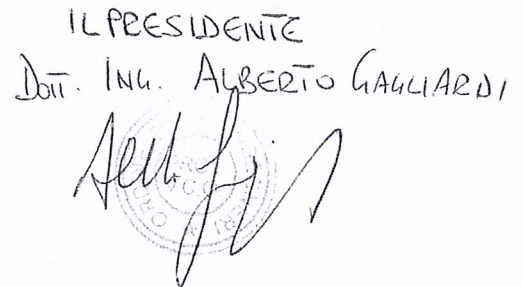 IL PRESIDENTE
DOTT. ING. ALBERTO GAGLIARDI